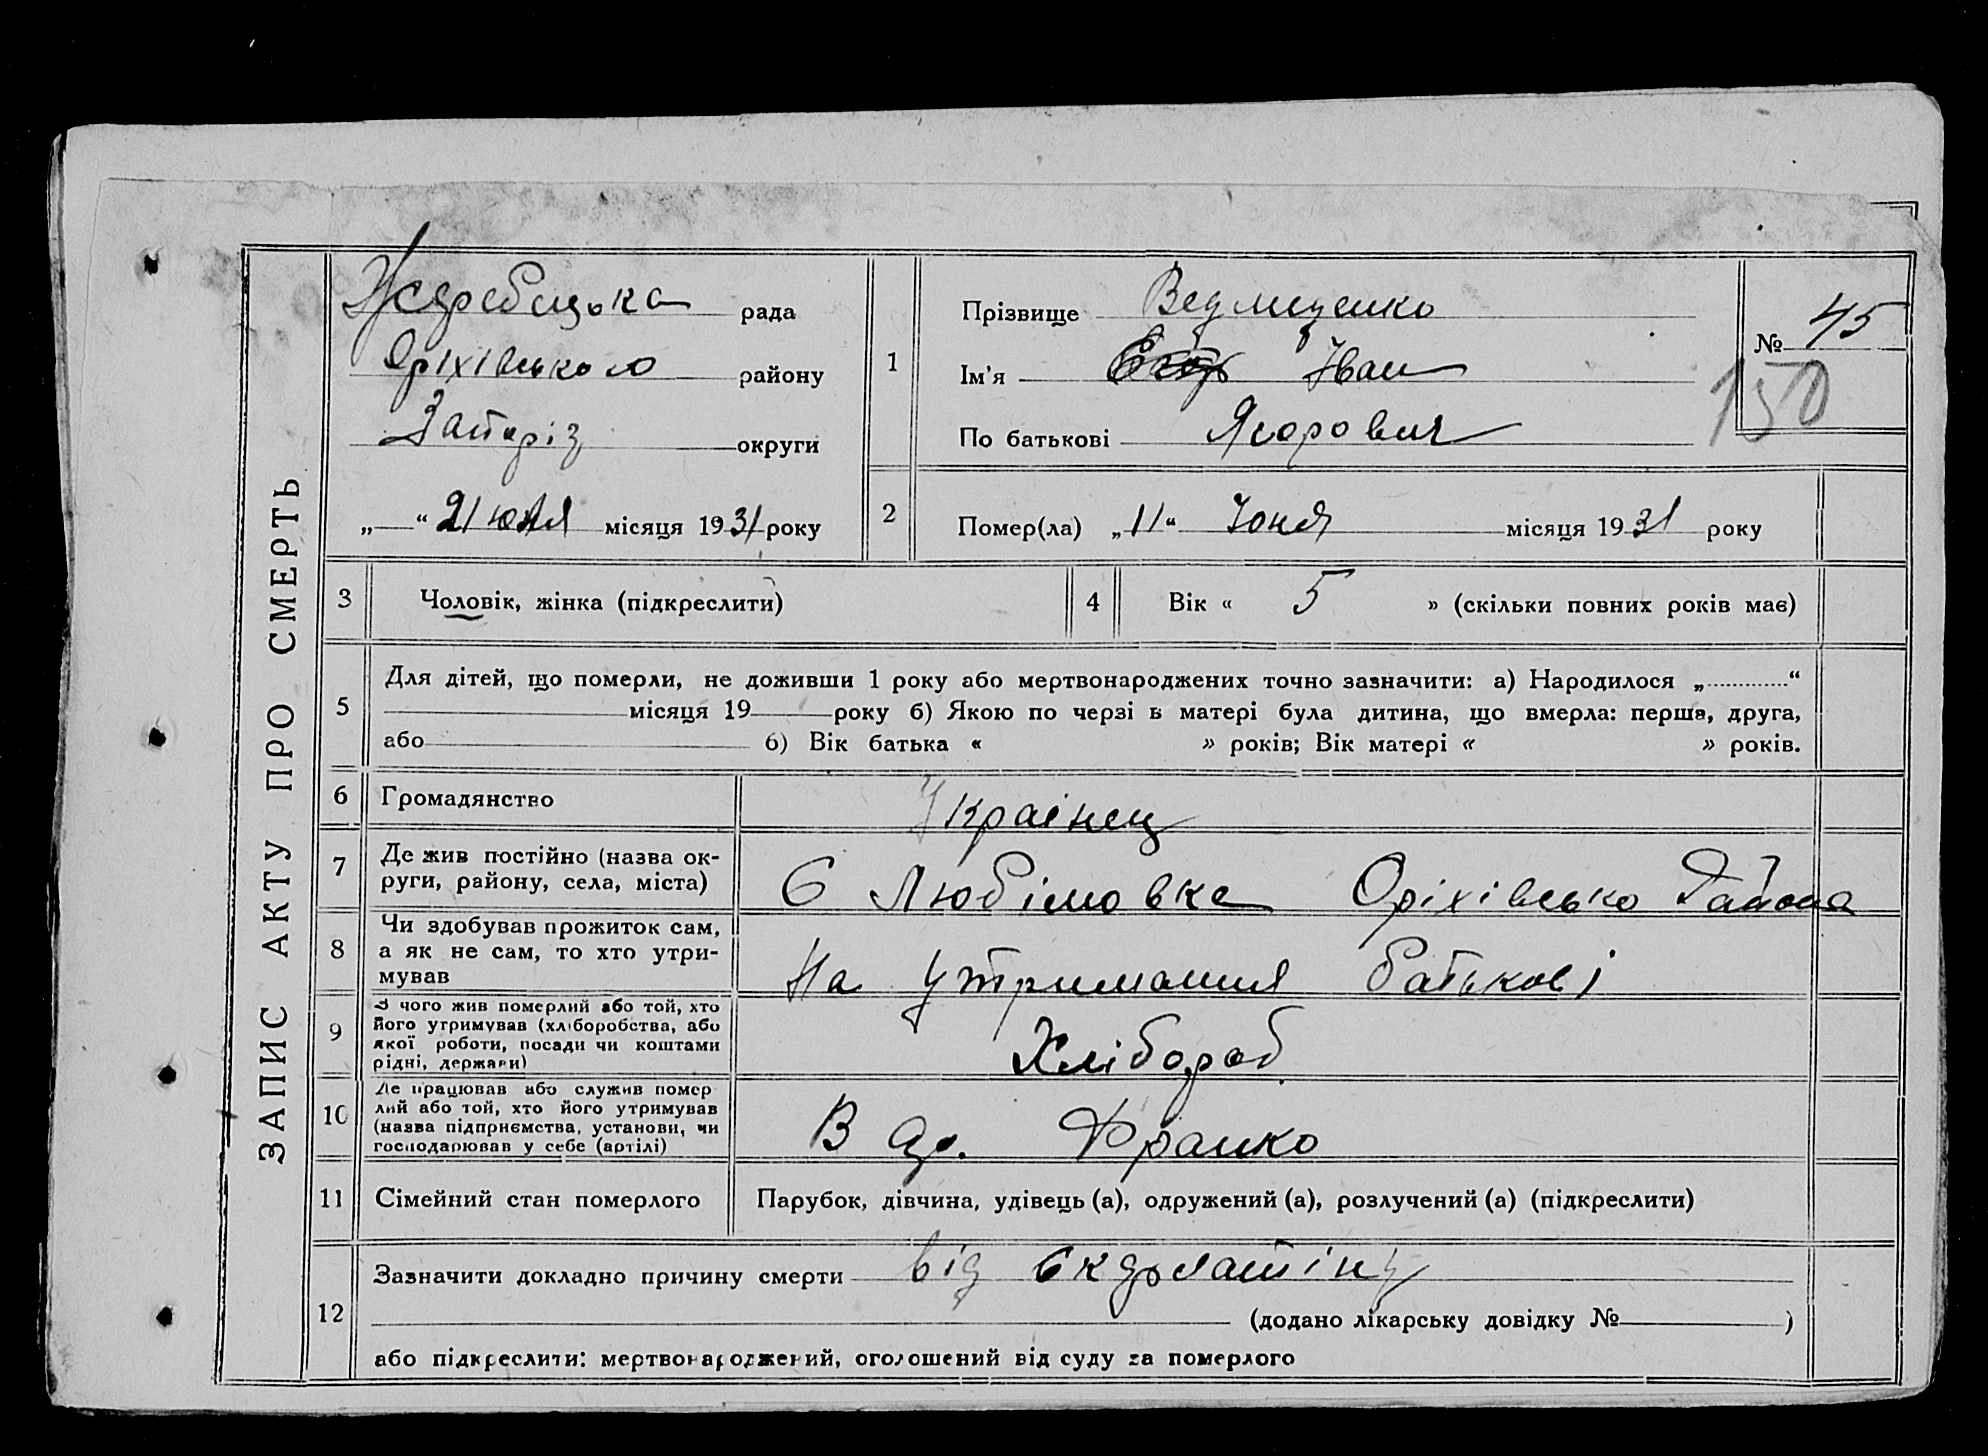 ЗАПИС АКТУ ПРО СМЕРТЬ
Жеребецька рада
Оріхівського району
Запоріз округи
„ “ 21 юля місяця 1931 року
1
Прізвище Ведмеденко
Ім'я Іван
По батькові Якорович
№ 45
150
2
Помер(ла) „11“ Юня місяця 1931 року
3 Чоловік, жінка (підкреслити)
4 Вік « 5 » (скільки повних років має)
5
Для дітей, що померли, не доживши 1 року або мертвонароджених точно зазначити: а) Народилося „ “
місяця 19 року б) Якою по черзі в матері була дитина, що вмерла: перша, друга,
або б) Вік батька « » років; Вік матері « » років.
6 Громадянство Українец
7
Де жив постійно (назва ок-
руги, району, села, міста)
С Любімовка Оріхівсько Района
8
Чи здобував прожиток сам,
а як не сам, то хто утри-
мував
На утримания батькові
9
З чого жив померлий або той, хто
його утримував (хліборобства, або
якої роботи, посади чи коштами
рідні, держави)
Хлібороб
10
Де працював або служив помер
лий або той, хто його утримував
(назва підприємства, установи, чи
господарював у себе (артілі)
В ар. Франко
11 Сімейний стан померлого Парубок, дівчина, удівець (а), одружений (а), розлучений (а) (підкреслити)
12
Зазначити докладно причину смерти від
(додано лікарську довідку № )
або підкреслити: мертвонароджений, оголошений від суду за померлого